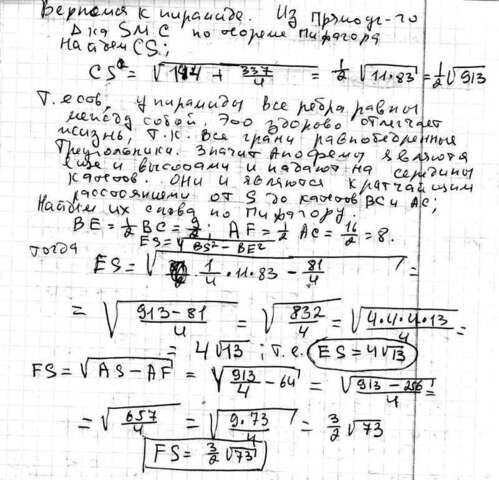 Вернемся к пирамиде. Из прямоуг-го
Δка SMC по теореме Пифагора
Найдем CS;
CS = √(144 + 337/4) = 1/2 √(11·83) = 1/2 √913
Т.е. у пирамиды все ребра равны
между собой. Это здорово облегчает
жизнь, т.к. все грани равнобедренные
треугольники. Значит Апофемы являются
еще и высотами и падают на середины
катетов... Они и являются кратчайшим
расстояниями от S до катетов BC и AC;
Найдем их снова по Пифагору.
BE = 1/2 BC = 9/2; AF = 1/2 AC = 16/2 = 8.
ES = √(BS² - BE²)
тогда
ES = √(1/4 · 11·83 - 81/4) =
= √((913-81)/4) = √(832/4) = √(4·4·4·13/4) =
= 4√13; т.е. ES = 4√13
FS = √(AS - AF) = √(913/4 - 64) = √((913 - 256)/4) =
= √(657/4) = √(9·73/4) = 3/2 √73
FS = 3/2 √73